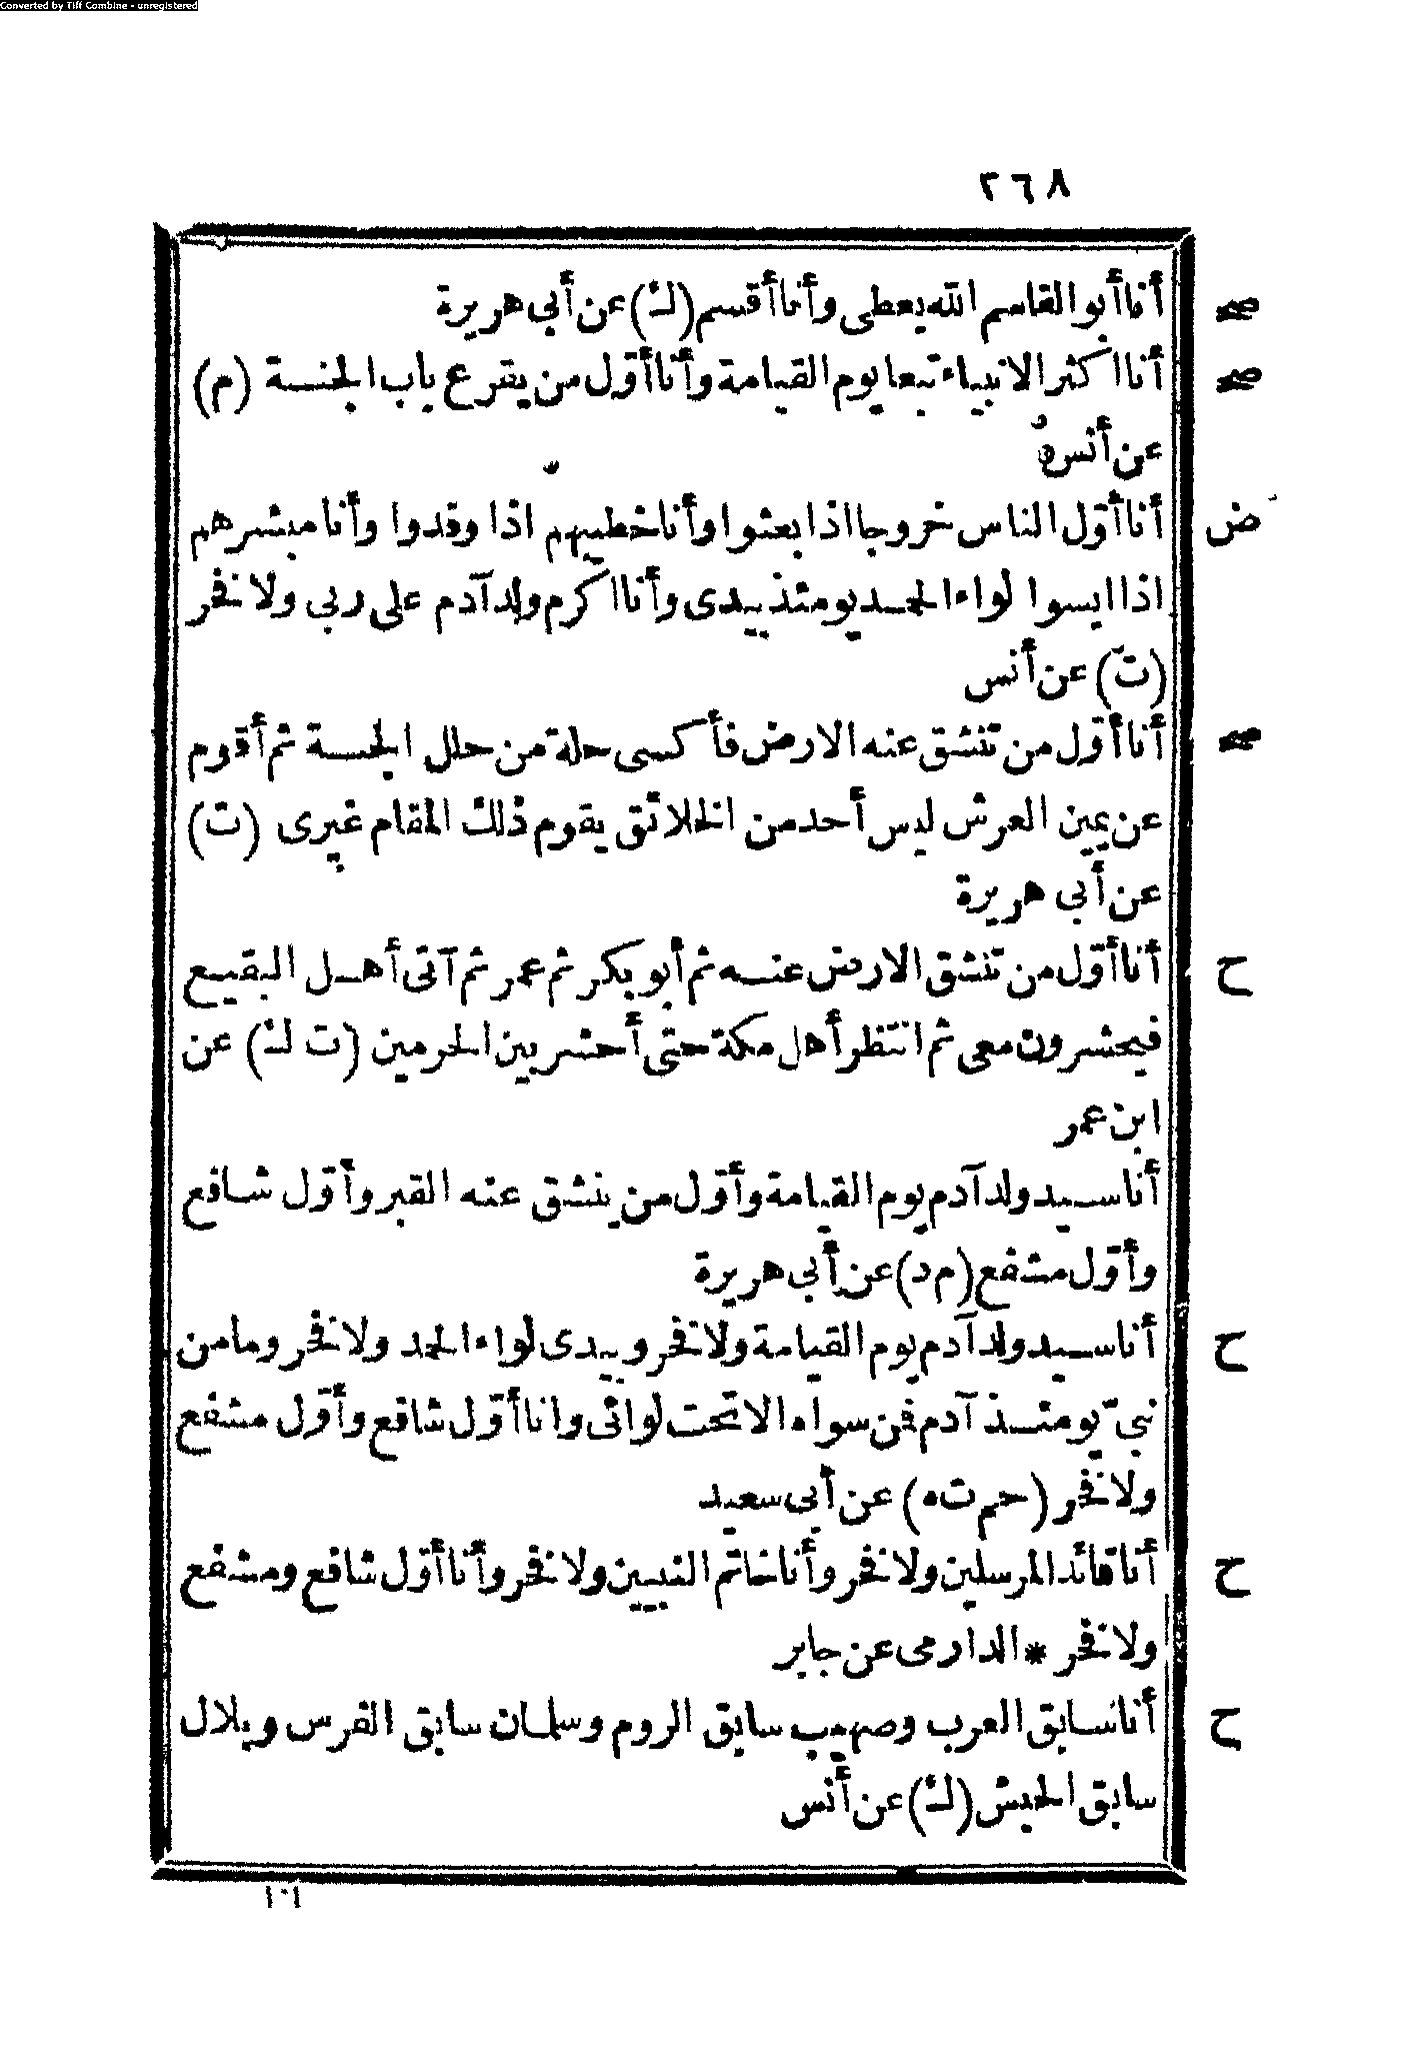 Converted by Tiff Combine - unregistered
٢٦٨
صح أنا أبو القاسم الله يعطى وأنا أقسم (ك) عن أبي هريرة
صح أنا اكثر الانبياء تبعا يوم القيامة وأنا أوّل من يقرع باب الجنة (م)
عن أنس
ض أنا أوّل الناس خروجا اذا بعثوا وأنا خطيبهم اذا وفدوا وأنا مبشرهم
اذا ايسوا لواء الحمد يومئذ بيدى وأنا اكرم ولد آدم على ربي ولا فخر
(ت) عن أنس
صح أنا أوّل من تنشق عنه الارض فأكسى حلة من حلل الجنة ثم أقوم
عن يمين العرش ليس أحد من الخلائق يقوم ذلك المقام غيرى (ت)
عن أبي هريرة
ح أنا أوّل من تنشق الارض عنه ثم أبو بكر ثم عمر ثم آتى أهل البقيع
فيحشرون معى ثم انتظر أهل مكة حتى أحشر بين الحرمين (ت ك) عن
ابن عمر
أنا سيد ولد آدم يوم القيامة وأوّل من ينشق عنه القبر وأوّل شافع
وأوّل مشفع (م د) عن أبي هريرة
ح أنا سيد ولد آدم يوم القيامة ولا فخر وبيدى لواء الحمد ولا فخر وما من
نبيّ يومئذ آدم فمن سواه الا تحت لوائى وانا أوّل شافع وأوّل مشفع
ولا فخر (حم ت ه) عن أبي سعيد
ح أنا قائد المرسلين ولا فخر وأنا خاتم النبيين ولا فخر وأنا أوّل شافع ومشفع
ولا فخر * الدارمى عن جابر
ح أنا سابق العرب وصهيب سابق الروم وسلمان سابق الفرس وبلال
سابق الحبش (ك) عن أنس